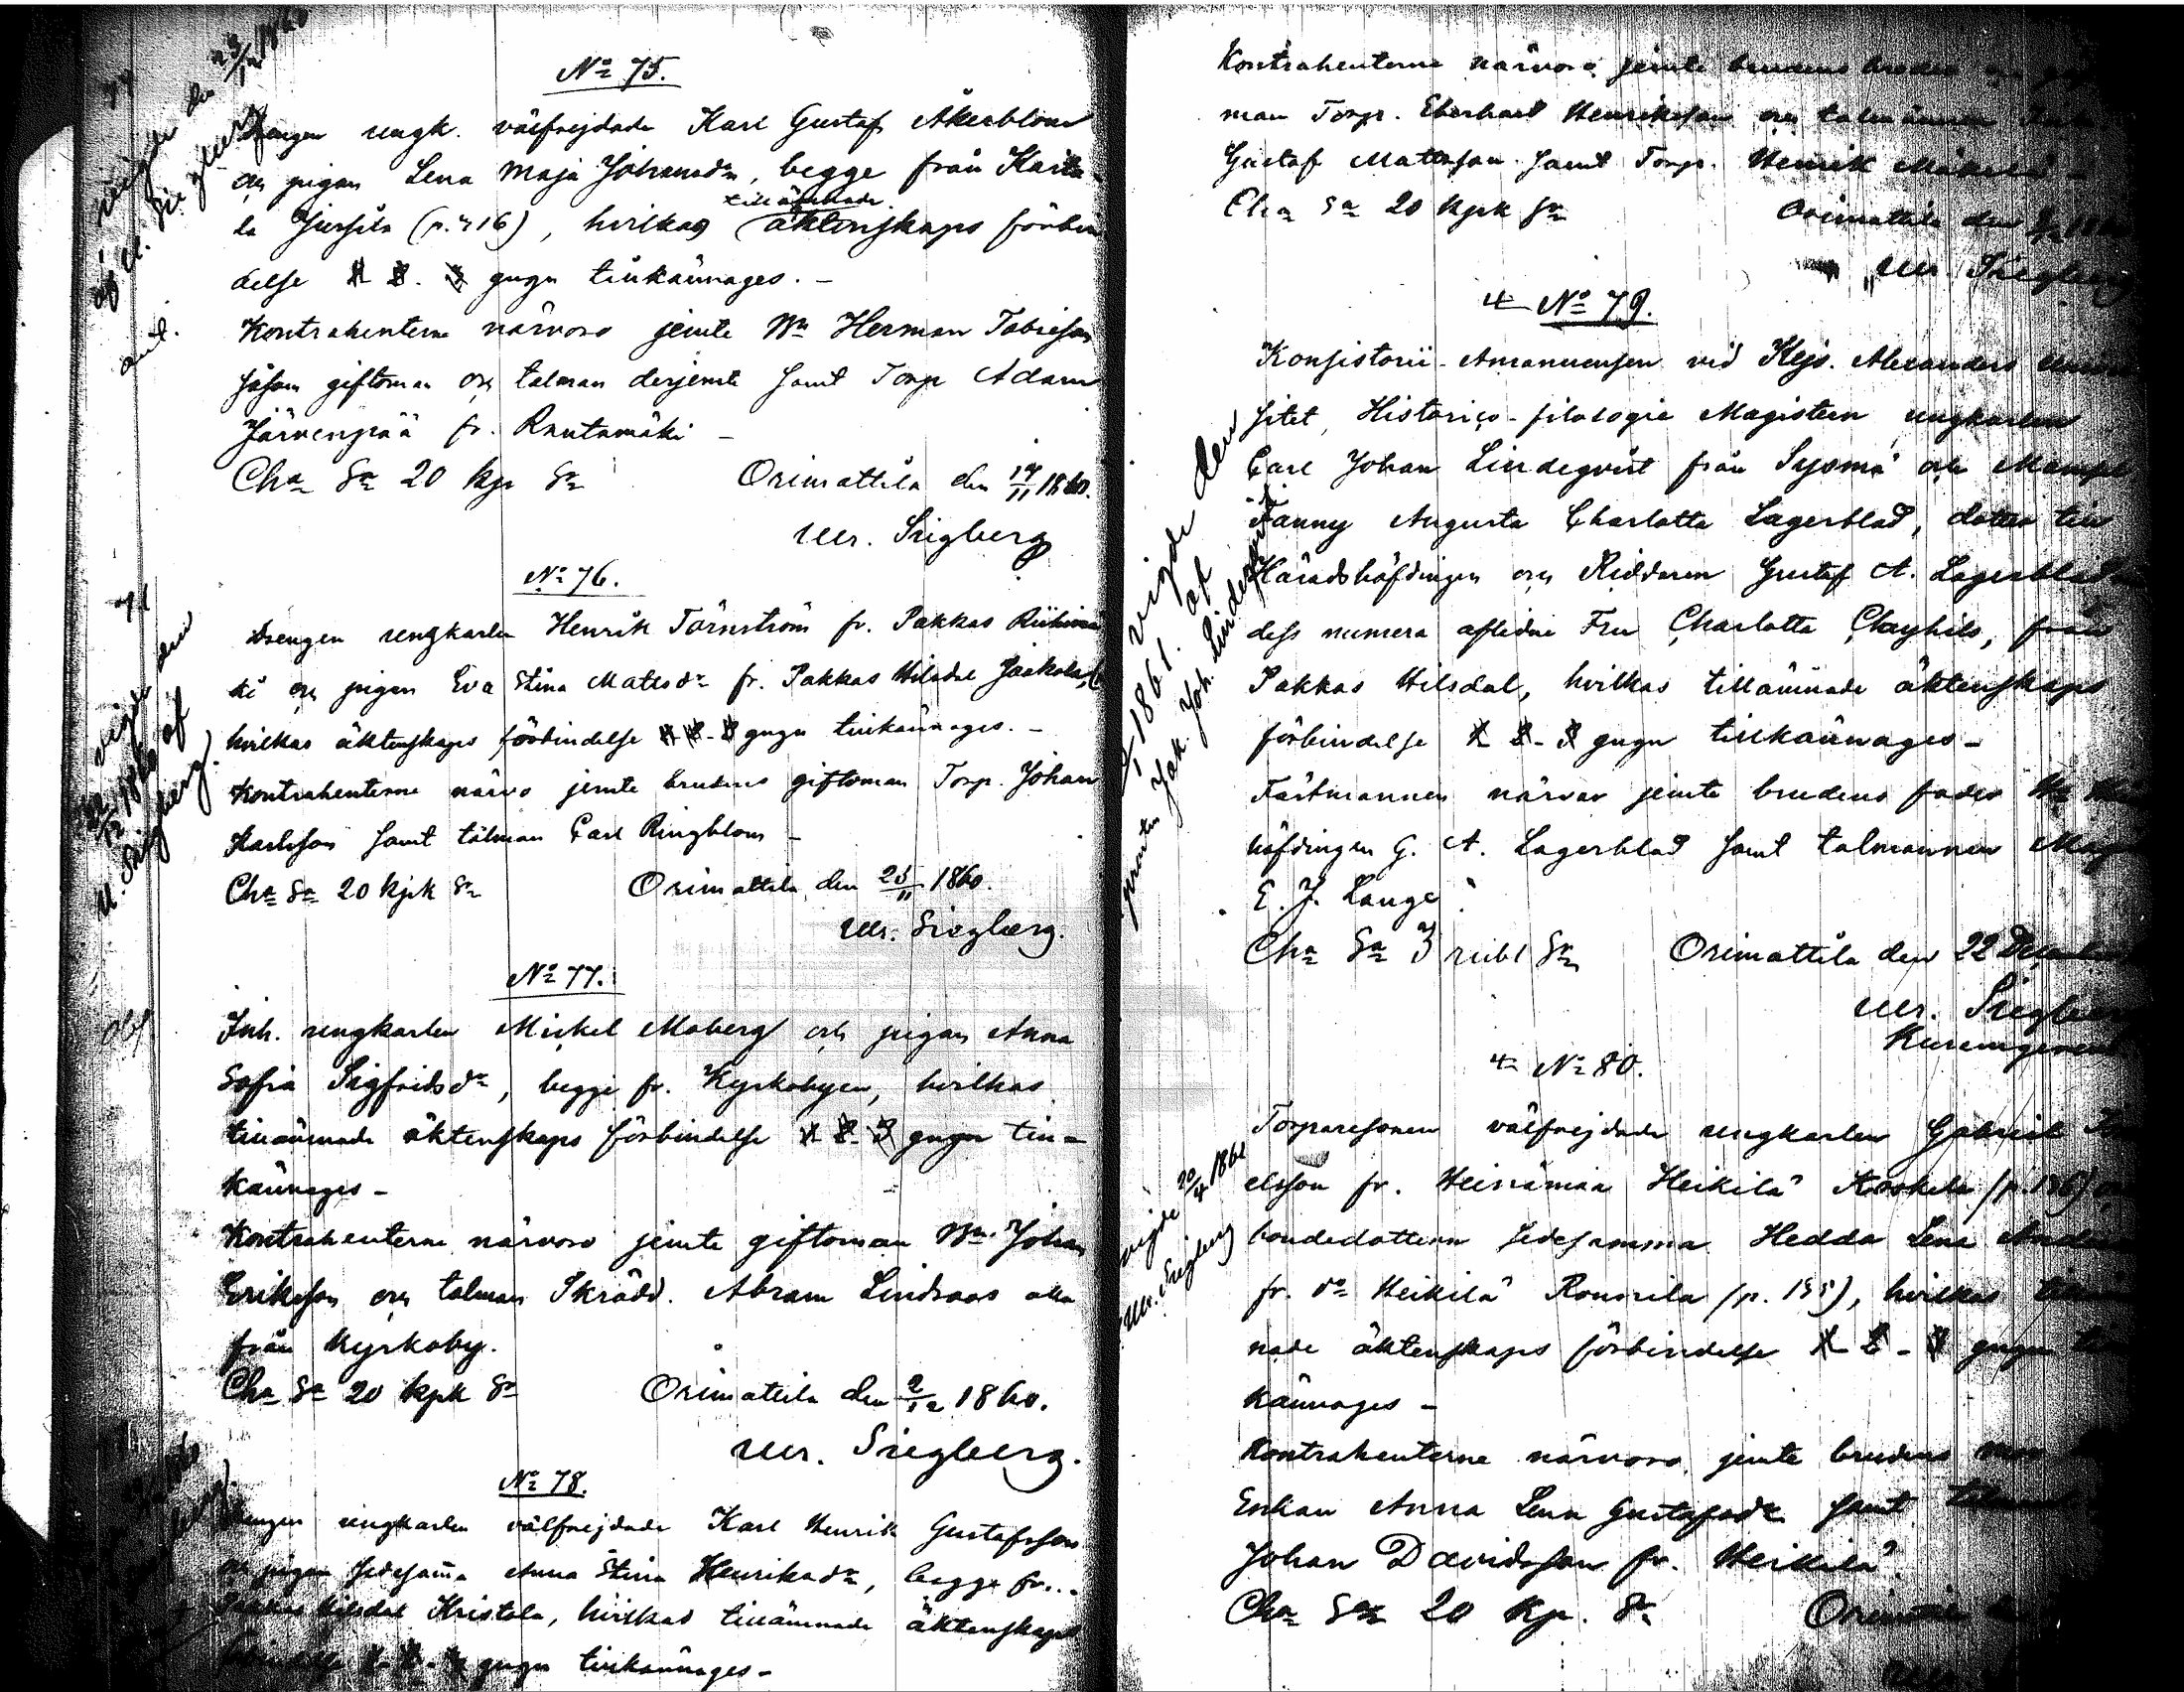 No 75.
Drengen ungk. välfrejdade Karl Gustaf Åkerblom
och pigan Lena Maja Johansdr, begge från Kaita-
tillämnade
la Jussila (p. 416), hvilkas äktenskaps förbin
delse 1. 2. 3 gngr tillkännages. -
Kontrahenterne närvoro jemte Bn Herman Tobiesson
såsom giftoman och talman derjemte samt Torp Adam
Järvenpää fr. Rautamäki -
Cha Sa 20 kp Sr Orimattila den 17/11 1860.
Ulr. Siegberg
vigde den
af
No 76.
Drengen ungkarlen Henrik Törnström fr. Pakkas Riihimä
ki och pigan Eva Stina Matsdr fr. Pakkas Hilsdal Jaakola,
hvilkas äktenskaps förbindelse 1 2 - 3 gngr tillkännages. -
Kontrahenterne närvo jemte brudens giftoman Torp. Johan
Karlsson samt talman Carl Ringblom -
Cha Sa 20 kpk Sr Orimattila den 25/11 1860.
Ulr. Siegberg.
vigde den
1860 af
U. Siegberg.
No 77.
Inh. ungkarlen Mickel Moberg och pigan Anna
Sofia Sigfridsdr, begge fr. Kyrkobyen, hvilkas
tillämnade äktenskaps förbindelse 1 2 - 3 gngr till-
kännages -
Kontrahenterne närvoro jemte giftoman Bn Johan
Eriksson och talman Skrädd. Abram Lindroos alla
från Kyrkoby.
Cha Sa 20 kpk Sr Orimattila den 2/12 1860.
Ulr. Siegberg.
No 78.
Drengen ungkarlen välfrejdade Karl Henrik Gustafsson
och pigan sedesamma Anna Stina Henriksdr, begge fr.
Pakkas Hilsdal Kristola, hvilkas tillämnade äktenskaps
förbindelse 1 - 2 - 3 gngr tillkännages -
Kontrahenterne närvoro jemte brudens broder
man Torpr. Eberhard Henriksson och talmännen
Gustaf Mattsson samt Torpr. Henrik Mäkelä -
Cha Sa 20 kpk Sr Orimattila den
Ulr. Siegberg
No 79.
Konsistorii-Amanuensen vid Kejs. Alexanders Univer
sitet, Historico-filologie Magistern ungkarlen
Carl Johan Lindeqvist från Sysmä och Mamsell
Fanny Augusta Charlotta Lagerblad, dotter till
Häradshöfdingen och Riddaren Gustaf A. Lagerblad
dess numera aflidne Fru Charlotta Clayhils, från
Pakkas Hilsdal, hvilkas tillämnade äktenskaps
förbindelse 1 - 2 - 3 gngr tillkännages -
Fästmannen närvar jemte brudens fader
höfdingen G. A. Lagerblad samt talmannen Mag
E. J. Lange.
Cha Sa 3 rubl Sr Orimattila den 22 December
Ulr. Siegberg
vigde den
1861. af
Joh. Lindeqvist
No 80.
Torparesonen välfrejdade ungkarlen Gabriel
elsson fr. Heinämaa Heikilä och
bondedottren sedesamma Hedda Lena
fr. do Heikilä Rounila (p. 135), hvilkas tilläm
nade äktenskaps förbindelse 1 - 2 - 3 gngr till
kännages -
Kontrahenterne närvoro jemte brudens mor
Enkan Anna Lena Gustafsdr samt talman
Johan Davidsson fr. Heikilä.
Cha Sa 20 kp. Sr
vigde 20/4 1861
Ulr. Siegberg